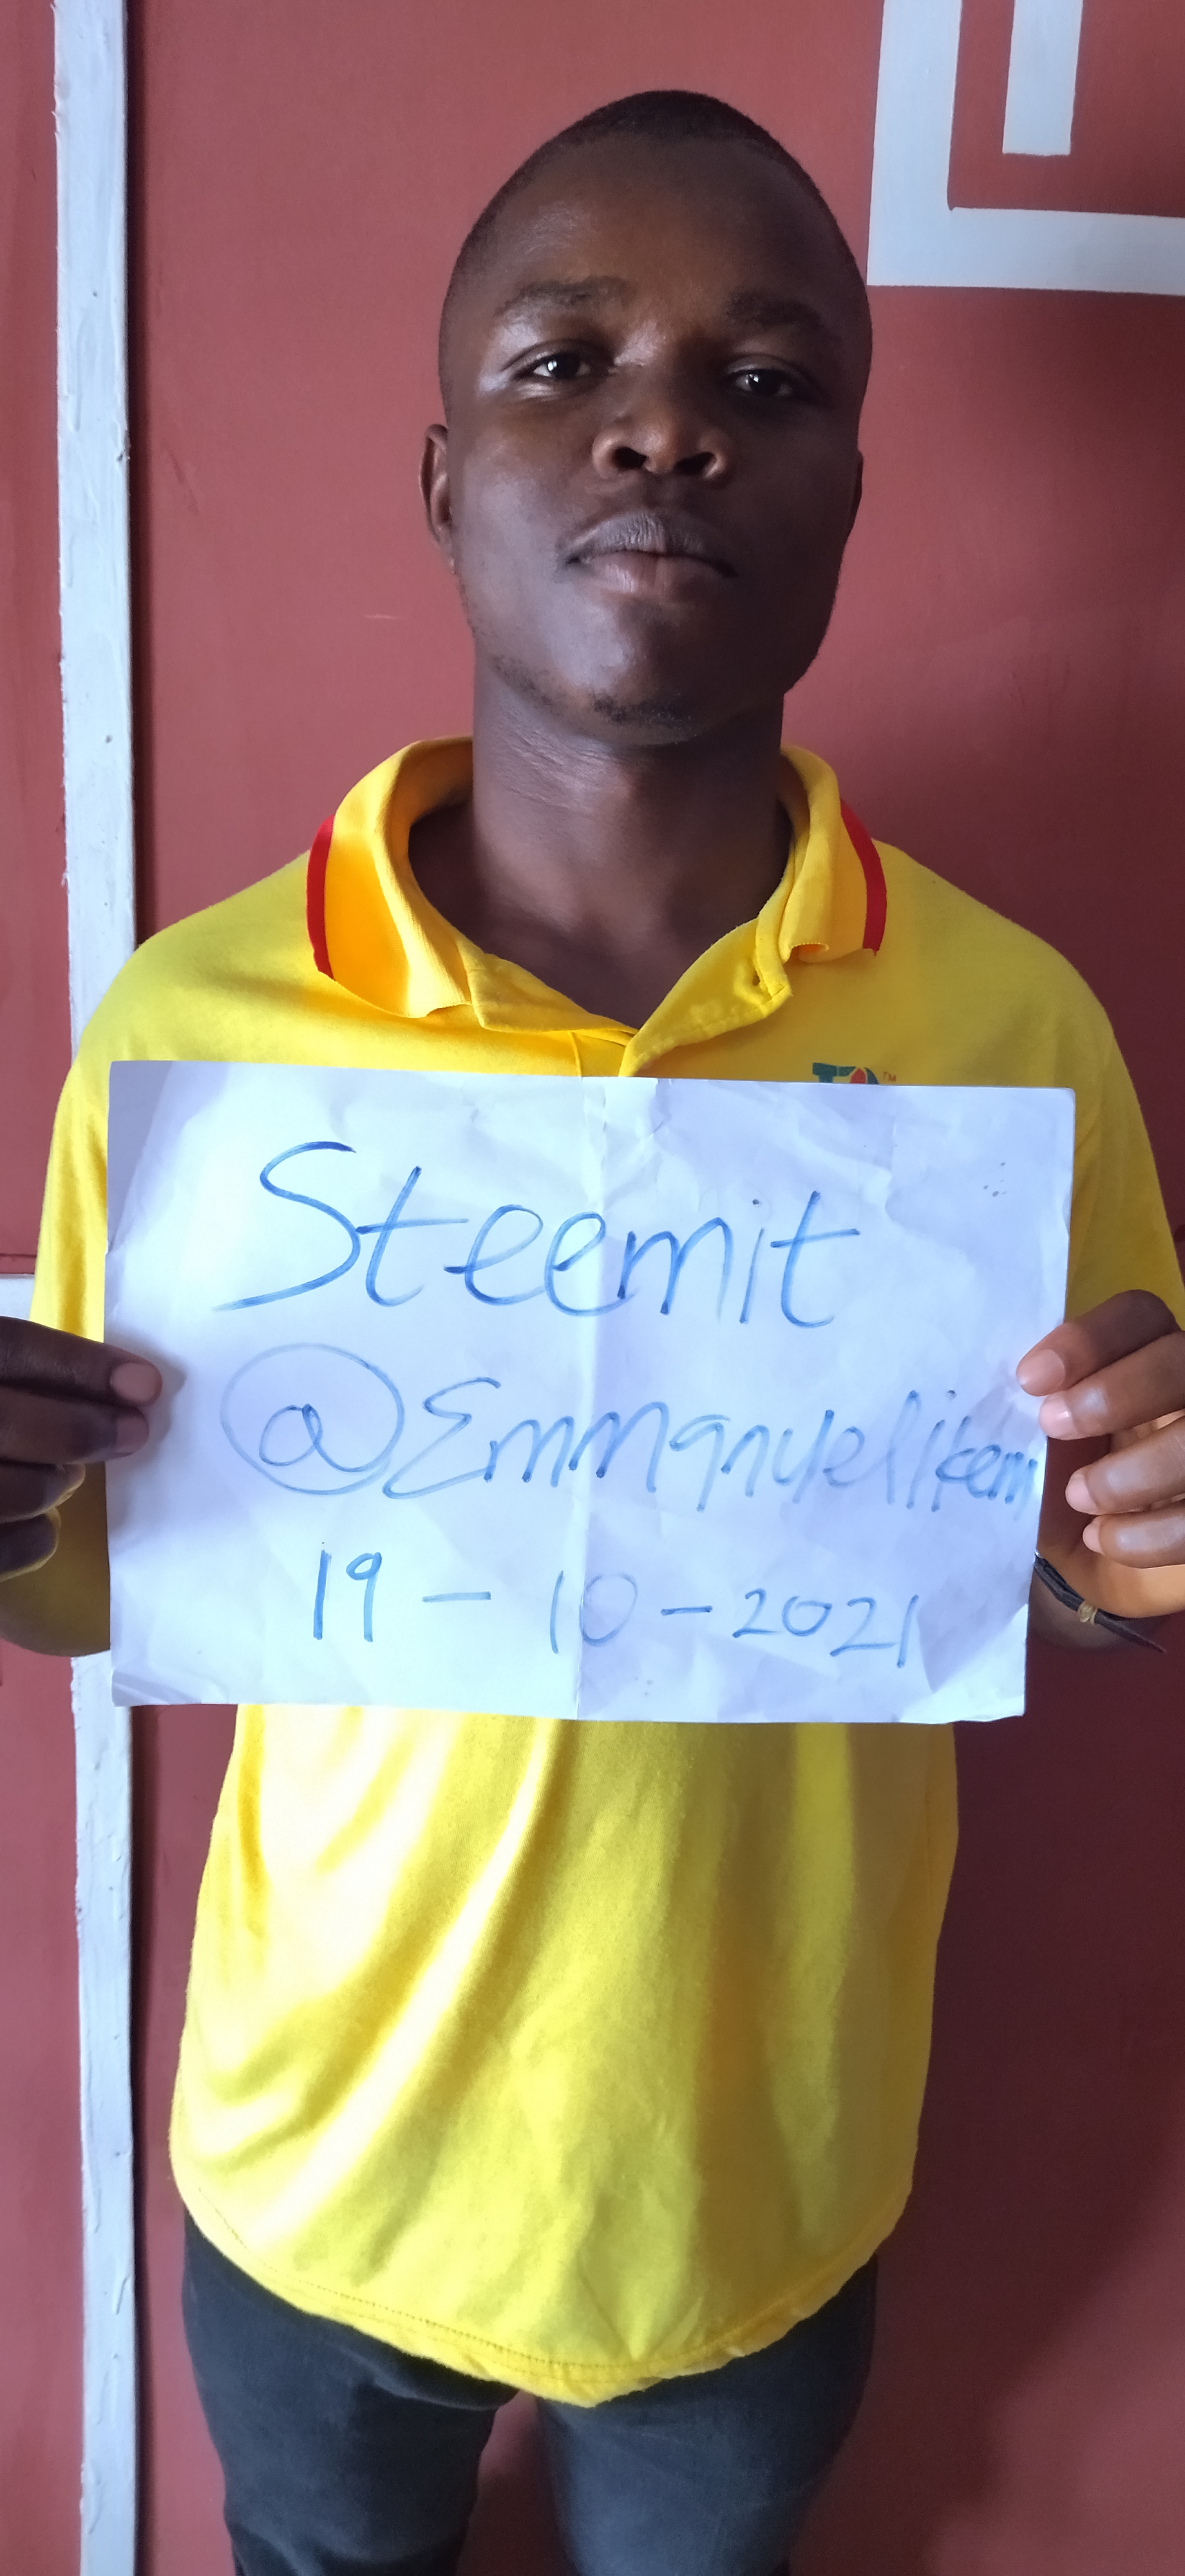 Steemit
@Emmanuelikem
19 - 10 - 2021
TM